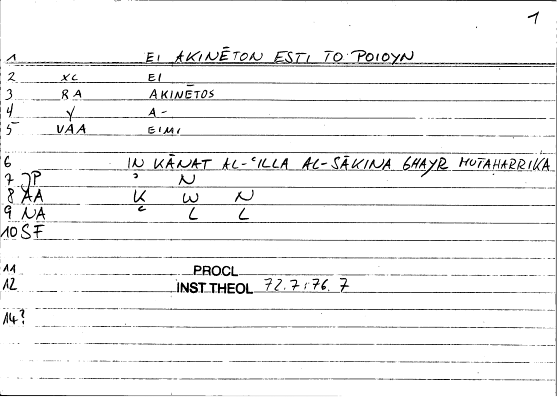 1
1 EI AKINĒTON ESTI TO POIOYN
2 XC EI
3 RA AKINĒTOS
4 Y A-
5 VAA EIMI
6 IN KĀNAT AL-ʿILLA AL-SĀKINA GHAYR MUTAHARRIKA
7 JP ʾ N
8 AA K W N
9 NA ʿ L L
10 SF
11 PROCL
12 INST THEOL 72.7:76.7
14?